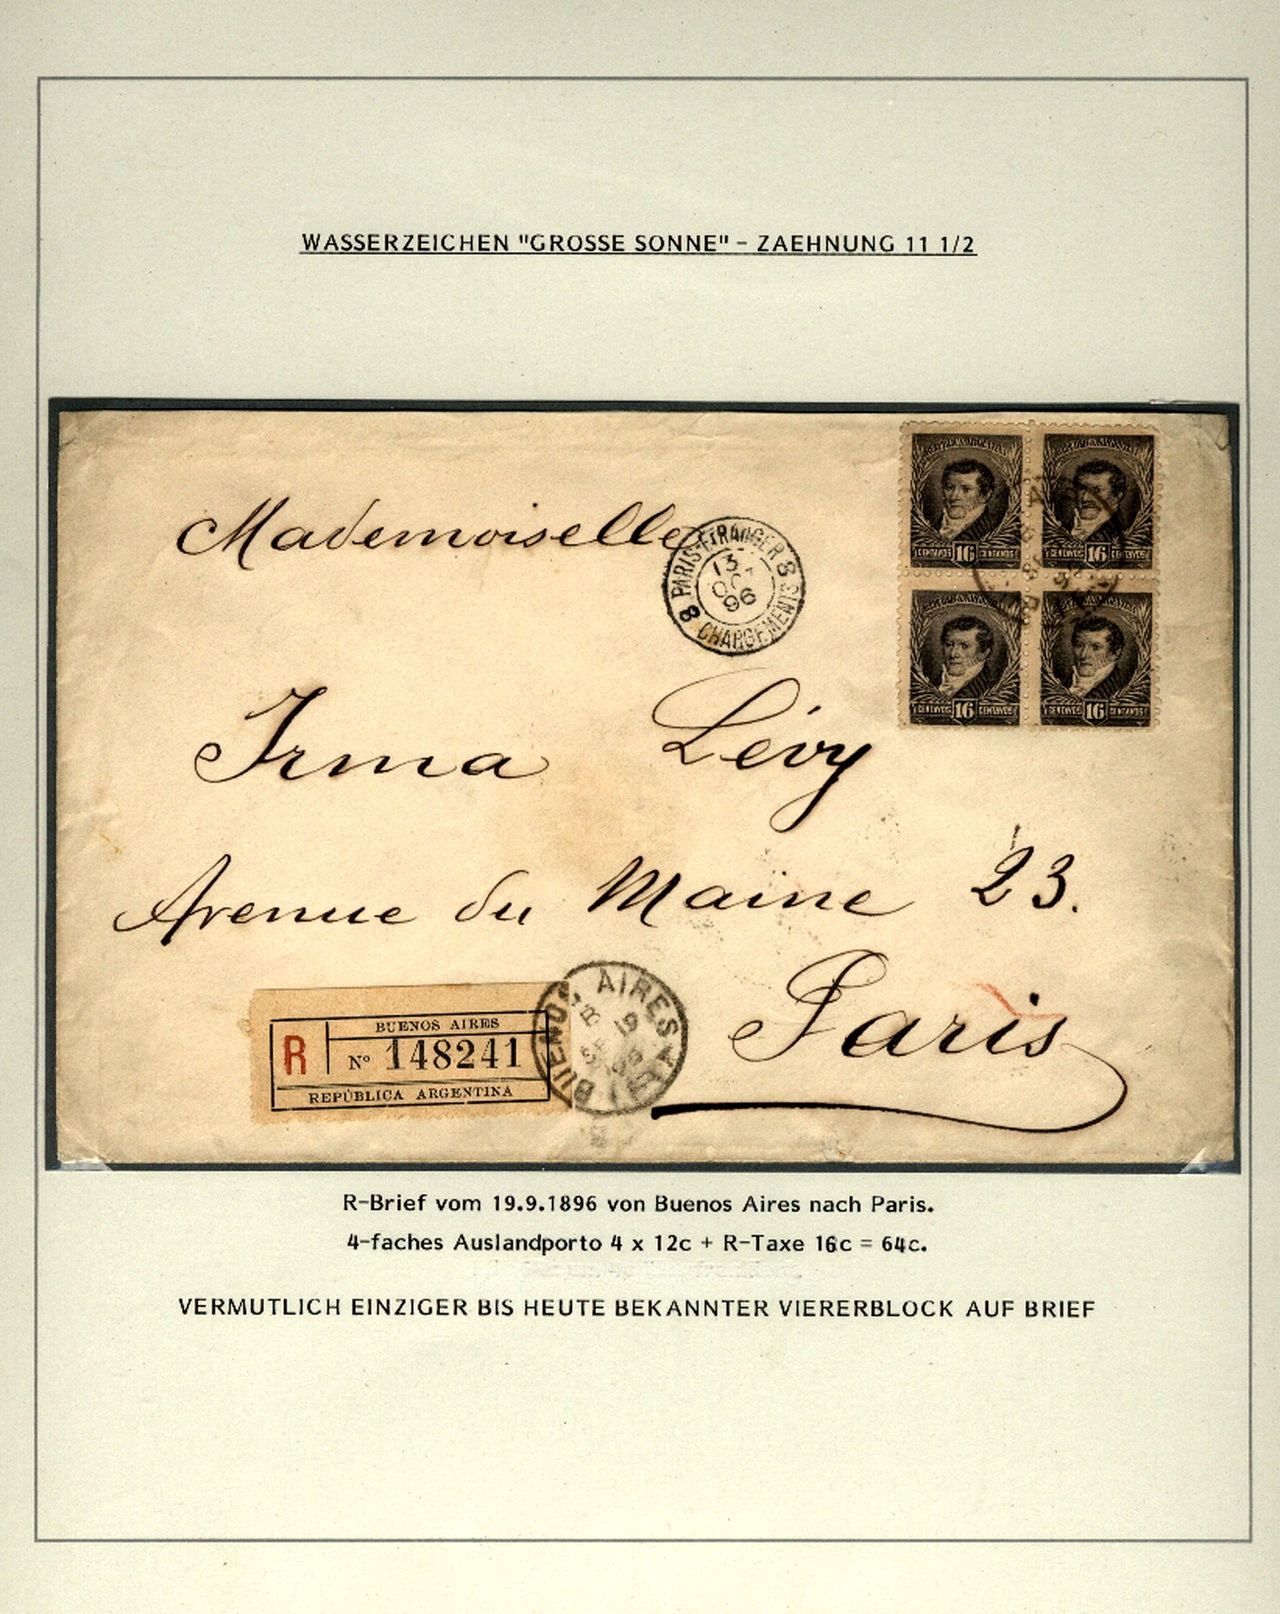 WASSERZEICHEN "GROSSE SONNE" - ZAEHNUNG 11 1/2
REPUBLICA ARGENTINA
REPUBLICA ARGENTINA
CENTAVOS 16 CENTAVOS
CENTAVOS 16 CENTAVOS
REPUBLICA ARGENTINA
REPUBLICA ARGENTINA
CENTAVOS 16 CENTAVOS
CENTAVOS 16 CENTAVOS
Mademoiselle
8 PARIS-ETRANGER 8
13
OCT
96
CHARGEMENTS
Irma Lévy
Avenue du Maine 23.
Paris
R
BUENOS AIRES
Nº 148241
REPÚBLICA ARGENTINA
BUENOS AIRES
R-Brief vom 19.9.1896 von Buenos Aires nach Paris.
4-faches Auslandporto 4 x 12c + R-Taxe 16c = 64c.
VERMUTLICH EINZIGER BIS HEUTE BEKANNTER VIERERBLOCK AUF BRIEF